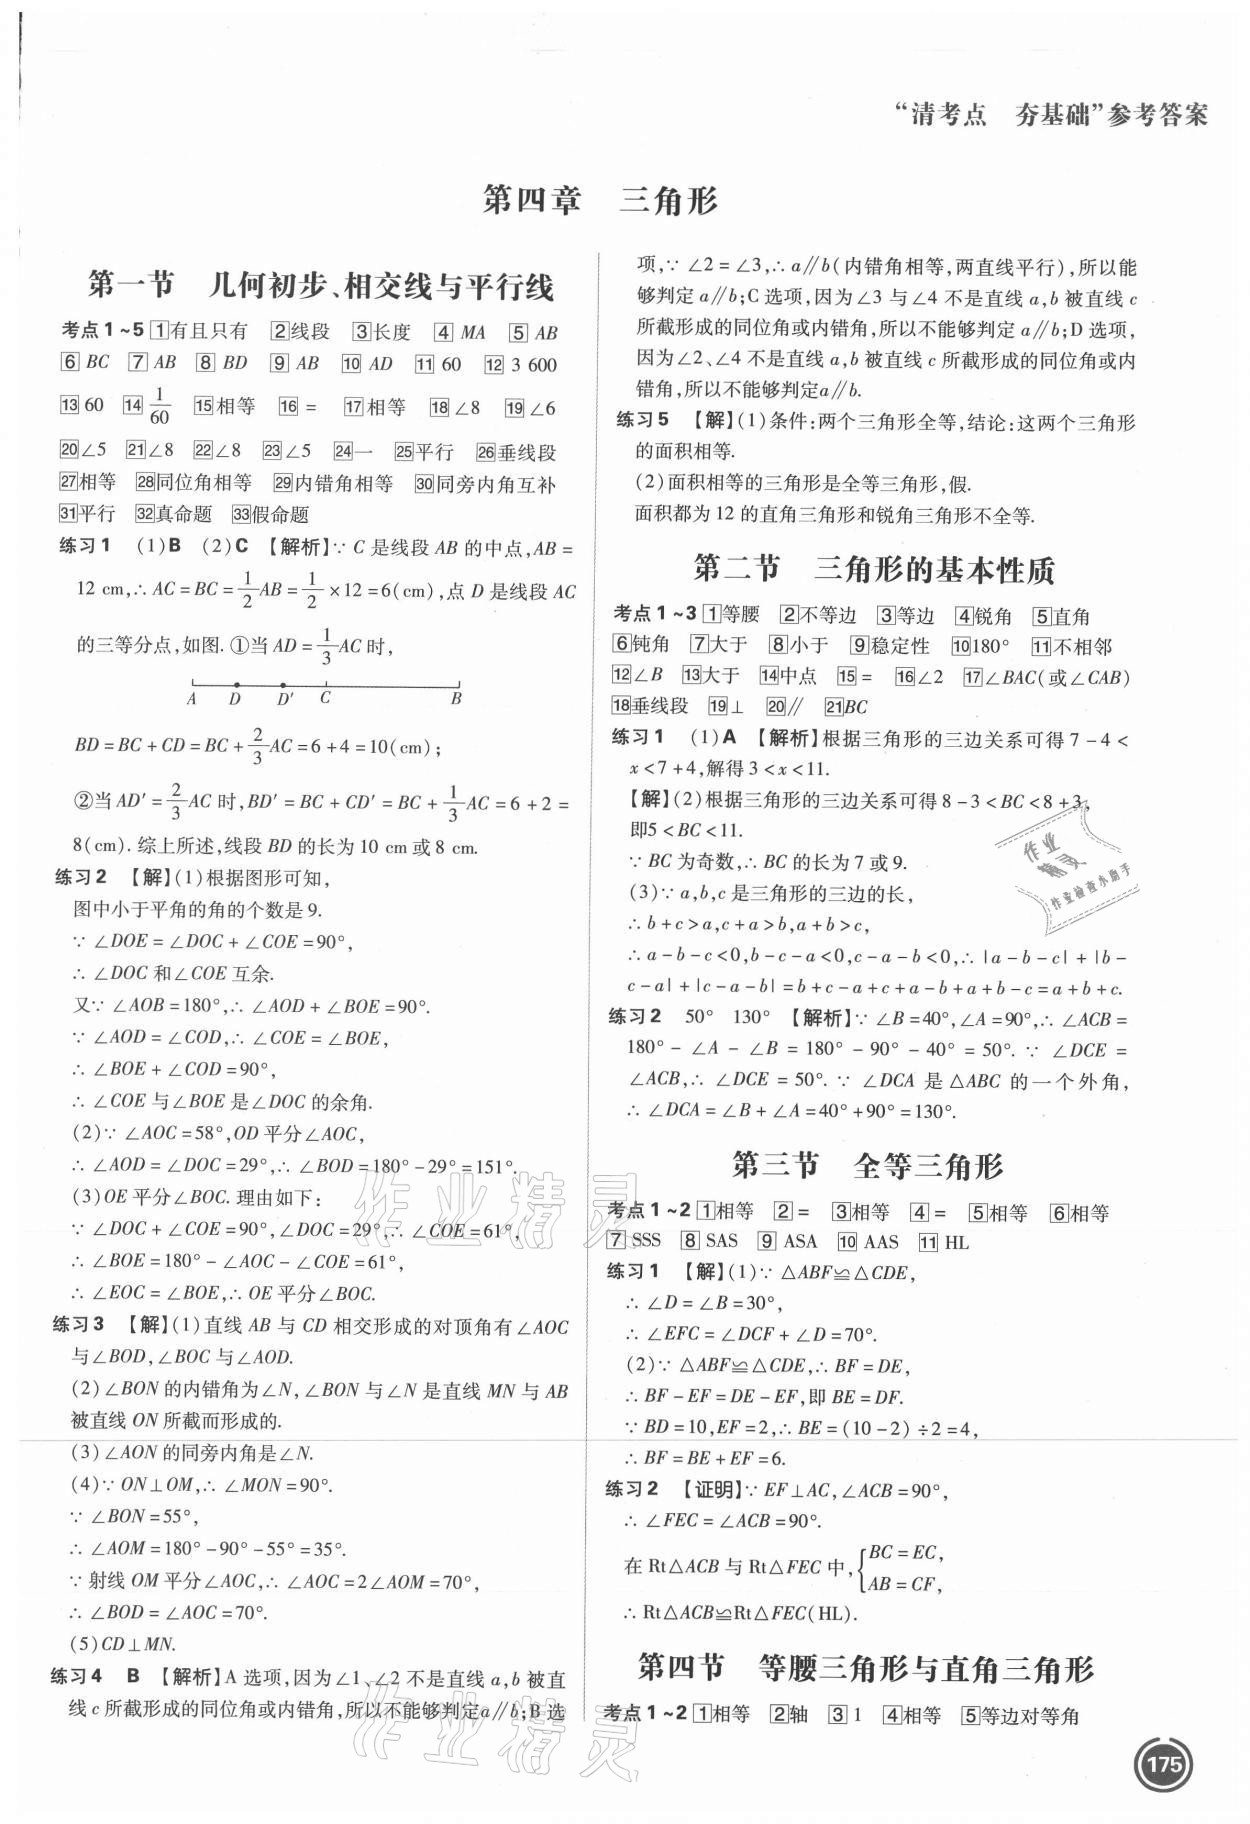 “清考点　夯基础”参考答案
第四章　三角形
第一节　几何初步、相交线与平行线
考点1~5 1有且只有　2线段　3长度　4 MA　5 AB
6 BC　7 AB　8 BD　9 AB　10 AD　11 60　12 3 600
13 60　14 1/60　15相等　16 =　17相等　18∠8　19∠6
20∠5　21∠8　22∠8　23∠5　24一　25平行　26垂线段
27相等　28同位角相等　29内错角相等　30同旁内角互补
31平行　32真命题　33假命题
练习1　(1)B　(2)C　【解析】∵ C 是线段 AB 的中点,AB =
12 cm,∴ AC = BC = 1/2 AB = 1/2 × 12 = 6(cm),点 D 是线段 AC
的三等分点,如图. ①当 AD = 1/3 AC 时,
A　D　D′　C　B
BD = BC + CD = BC + 2/3 AC = 6 + 4 = 10(cm);
②当 AD′ = 2/3 AC 时,BD′ = BC + CD′ = BC + 1/3 AC = 6 + 2 =
8(cm). 综上所述,线段 BD 的长为 10 cm 或 8 cm.
练习2　【解】(1)根据图形可知,
图中小于平角的角的个数是 9.
∵ ∠DOE = ∠DOC + ∠COE = 90°,
∴ ∠DOC 和∠COE 互余.
又∵ ∠AOB = 180°,∴ ∠AOD + ∠BOE = 90°.
∵ ∠AOD = ∠COD,∴ ∠COE = ∠BOE,
∴ ∠BOE + ∠COD = 90°,
∴ ∠COE 与∠BOE 是∠DOC 的余角.
(2)∵ ∠AOC = 58°,OD 平分∠AOC,
∴ ∠AOD = ∠DOC = 29°,∴ ∠BOD = 180° - 29° = 151°.
(3)OE 平分∠BOC. 理由如下:
∵ ∠DOC + ∠COE = 90°,∠DOC = 29°,∴ ∠COE = 61°,
∴ ∠BOE = 180° - ∠AOC - ∠COE = 61°,
∴ ∠EOC = ∠BOE,∴ OE 平分∠BOC.
练习3　【解】(1)直线 AB 与 CD 相交形成的对顶角有∠AOC
与∠BOD,∠BOC 与∠AOD.
(2)∠BON 的内错角为∠N,∠BON 与∠N 是直线 MN 与 AB
被直线 ON 所截而形成的.
(3)∠AON 的同旁内角是∠N.
(4)∵ ON⊥OM,∴ ∠MON = 90°.
∵ ∠BON = 55°,
∴ ∠AOM = 180° - 90° - 55° = 35°.
∵ 射线 OM 平分∠AOC,∴ ∠AOC = 2∠AOM = 70°,
∴ ∠BOD = ∠AOC = 70°.
(5)CD⊥MN.
练习4　B　【解析】A 选项,因为∠1、∠2 不是直线 a,b 被直
线 c 所截形成的同位角或内错角,所以不能够判定a∥b;B 选
项,∵ ∠2 = ∠3,∴ a∥b(内错角相等,两直线平行),所以能
够判定 a∥b;C 选项,因为∠3 与∠4 不是直线 a,b 被直线 c
所截形成的同位角或内错角,所以不能够判定 a∥b;D 选项,
因为∠2、∠4 不是直线 a,b 被直线 c 所截形成的同位角或内
错角,所以不能够判定a∥b.
练习5　【解】(1)条件:两个三角形全等,结论:这两个三角形
的面积相等.
(2)面积相等的三角形是全等三角形,假.
面积都为 12 的直角三角形和锐角三角形不全等.
第二节　三角形的基本性质
考点1~3 1等腰　2不等边　3等边　4锐角　5直角
6钝角　7大于　8小于　9稳定性　10 180°　11不相邻
12∠B　13大于　14中点　15 =　16∠2　17∠BAC(或∠CAB)
18垂线段　19⊥　20∥　21 BC
练习1　(1)A　【解析】根据三角形的三边关系可得 7 - 4 <
x < 7 + 4,解得 3 < x < 11.
【解】(2)根据三角形的三边关系可得 8 - 3 < BC < 8 + 3,
即5 < BC < 11.
∵ BC 为奇数,∴ BC 的长为 7 或 9.
(3)∵ a,b,c 是三角形的三边的长,
∴ b + c > a,c + a > b,a + b > c,
∴ a - b - c < 0,b - c - a < 0,c - a - b < 0,∴ |a - b - c| + |b -
c - a| + |c - a - b| = b + c - a + c + a - b + a + b - c = a + b + c.
练习2　50°　130°　【解析】∵ ∠B = 40°,∠A = 90°,∴ ∠ACB =
180° - ∠A - ∠B = 180° - 90° - 40° = 50°. ∵ ∠DCE =
∠ACB,∴ ∠DCE = 50°. ∵ ∠DCA 是 △ABC 的一个外角,
∴ ∠DCA = ∠B + ∠A = 40° + 90° = 130°.
第三节　全等三角形
考点1~2 1相等　2 =　3相等　4 =　5相等　6相等
7 SSS　8 SAS　9 ASA　10 AAS　11 HL
练习1　【解】(1)∵ △ABF≌△CDE,
∴ ∠D = ∠B = 30°,
∴ ∠EFC = ∠DCF + ∠D = 70°.
(2)∵ △ABF≌△CDE,∴ BF = DE,
∴ BF - EF = DE - EF,即 BE = DF.
∵ BD = 10,EF = 2,∴ BE = (10 - 2) ÷ 2 = 4,
∴ BF = BE + EF = 6.
练习2　【证明】∵ EF⊥AC,∠ACB = 90°,
∴ ∠FEC = ∠ACB = 90°.
在 Rt△ACB 与 Rt△FEC 中,{BC = EC, AB = CF,
∴ Rt△ACB≌Rt△FEC(HL).
第四节　等腰三角形与直角三角形
考点1~2 1相等　2轴　3 1　4相等　5等边对等角
175
作业精灵
作业检查小助手
作业精灵
作业精灵